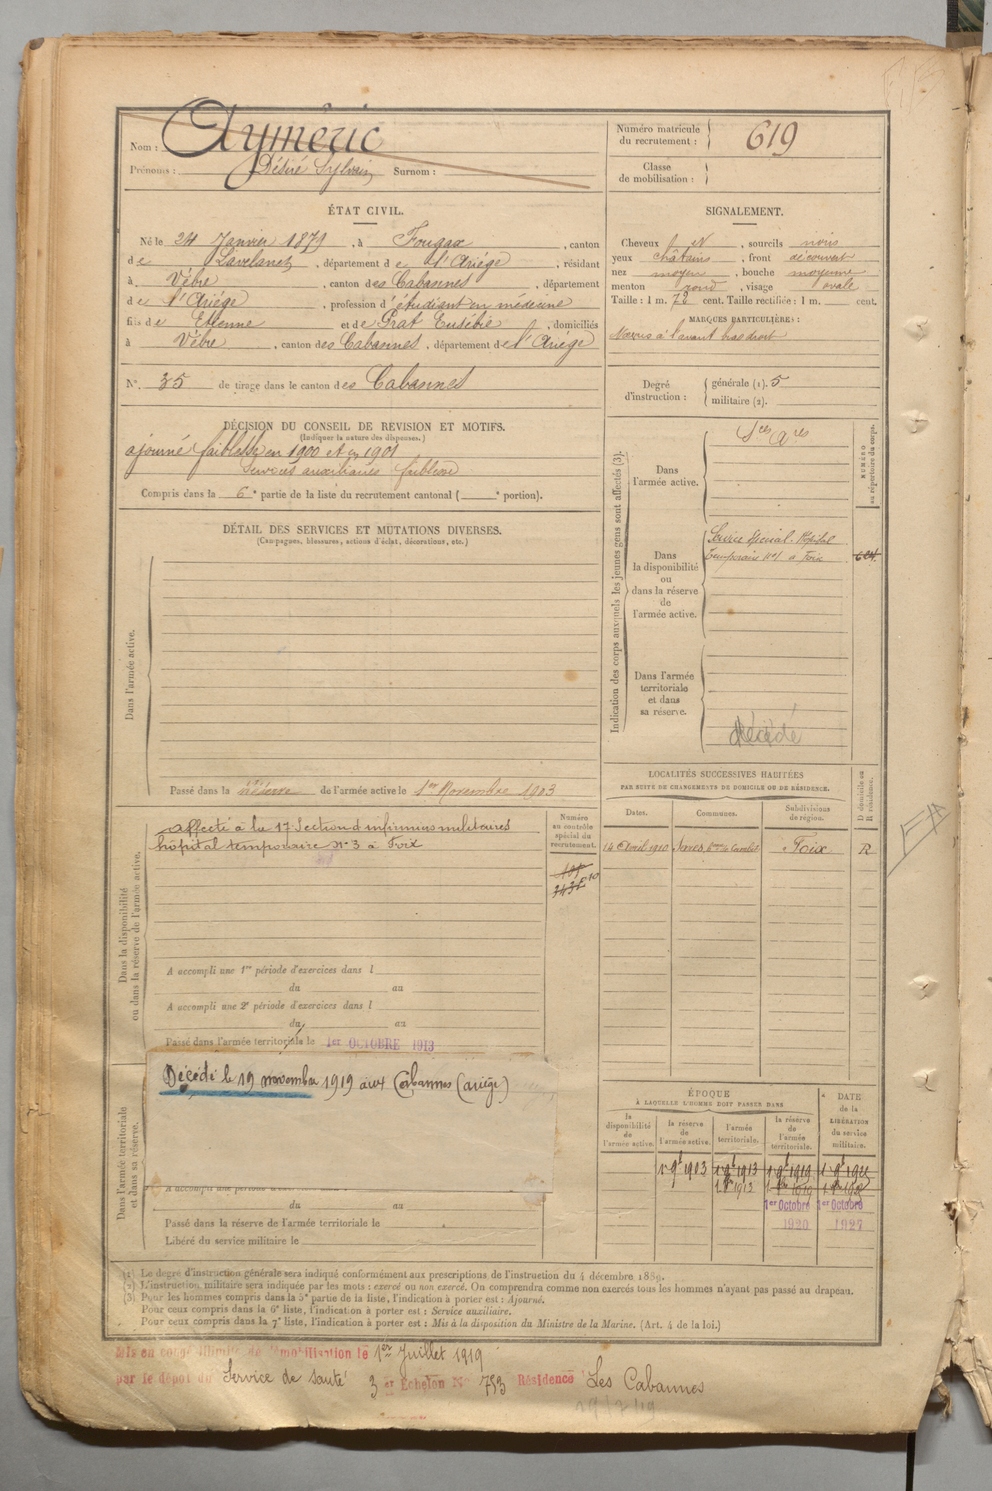 Nom : Ayméric
Prénoms : Désiré Sylvain Surnom :
Numéro matricule du recrutement : 619
Classe de mobilisation :
ÉTAT CIVIL.
Né le 24 Janvier 1879, à Fougax, canton
de Lavelanet, département de l'Ariége, résidant
à Vébre, canton des Cabannes, département
de l'Ariége, profession d'étudiant en médecine
fils de Etienne et de Prat Eulalie, domiciliés
à Vèbre, canton des Cabannes, département de l'Ariége
N° 35 de tirage dans le canton des Cabannes
SIGNALEMENT.
Cheveux N, sourcils noirs
yeux châtains, front découvert
nez moyen, bouche moyenne
menton rond, visage ovale
Taille : 1 m. 72 cent. Taille rectifiée : 1 m. cent.
MARQUES PARTICULIÈRES :
à l'avant bras droit
Degré d'instruction : générale (1). 5
militaire (2).
DÉCISION DU CONSEIL DE RÉVISION ET MOTIFS.
(Indiquer la nature des dispenses.)
ajourné faiblesse en 1900 et en 1901
Services auxiliaires faiblesse
Compris dans la 6e partie de la liste du recrutement cantonal ( e portion).
DÉTAIL DES SERVICES ET MUTATIONS DIVERSES.
(Campagnes, blessures, actions d'éclat, décorations, etc.)
Dans l'armée active.
Passé dans la réserve de l'armée active le 1er Novembre 1903
Indication des corps auxquels les jeunes gens sont affectés (3).
NUMÉRO au répertoire du corps.
Dans l'armée active.
Sces Ares
Dans la disponibilité ou dans la réserve de l'armée active.
Service spécial. Hôpital
temporaire N°1 à Foix
Dans l'armée territoriale et dans sa réserve.
décédé
Dans la disponibilité ou dans la réserve de l'armée active.
affecté à la 17 Section d'infirmiers militaires
hôpital temporaire n° 3 à Foix
Numéro au contrôle spécial du recrutement.
A accompli une 1re période d'exercices dans l
du au
A accompli une 2e période d'exercices dans l
du au
Passé dans l'armée territoriale le 1er OCTOBRE 1913
LOCALITÉS SUCCESSIVES HABITÉES
PAR SUITE DE CHANGEMENTS DE DOMICILE OU DE RÉSIDENCE.
D domicile ou R résidence.
Dates. Communes. Subdivisions de région.
14 Avril 1910 Foix R
Dans l'armée territoriale et dans sa réserve.
Décédé le 19 novembre 1919 aux Cabannes (ariège)
A accompli une période
du au
Passé dans la réserve de l'armée territoriale le
Libéré du service militaire le
ÉPOQUE
A LAQUELLE L'HOMME DOIT PASSER DANS
DATE de la LIBÉRATION du service militaire.
la disponibilité de l'armée active. la réserve de l'armée active. l'armée territoriale. la réserve de l'armée territoriale.
1er Octobre 1920
1er Octobre 1927
(1) Le degré d'instruction générale sera indiqué conformément aux prescriptions de l'instruction du 4 décembre 1889.
(2) L'instruction militaire sera indiquée par les mots : exercé ou non exercé. On comprendra comme non exercés tous les hommes n'ayant pas passé au drapeau.
(3) Pour les hommes compris dans la 5e partie de la liste, l'indication à porter est : Ajourné.
Pour ceux compris dans la 6e liste, l'indication à porter est : Service auxiliaire.
Pour ceux compris dans la 7e liste, l'indication à porter est : Mis à la disposition du Ministre de la Marine. (Art. 4 de la loi.)
Mis en congé illimité de démobilisation le 1er Juillet 1919
par le dépôt du Service de santé 3 er Echelon No 753 Résidence Les Cabannes
29/7/19